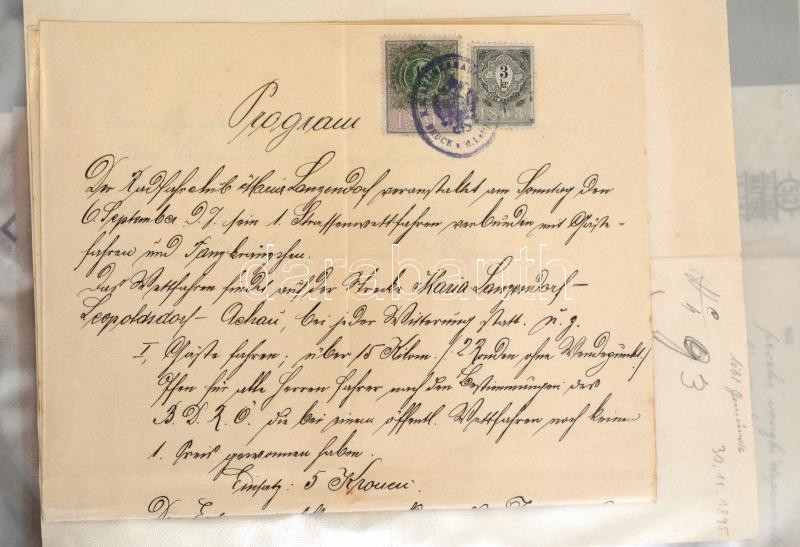 Program
Der Radfahrclub Maria Lanzendorf veranstaltet am Sonntag den
6. September d. J. sein 1. Strassenwettfahren verbunden mit Gäste-
fahren und Tanzkränzchen.
Das Wettfahren findet auf der Strecke Maria Lanzendorf -
Leopoldsdorf - Achau, bei jeder Witterung statt. u. z.
I, Gäste fahren; über 15 Kilom. /: 2 Runden ohne Wendepunkt :/
Offen für alle Herren Fahrer nach den Bestimmungen des
B. D. R. Ö. die bei einem öffentl. Wettfahren noch keinen
1. Preis gewonnen haben.
Einsatz: 5 Kronen.
3
kr
BRUCK
darabanth
93
30.11.1895